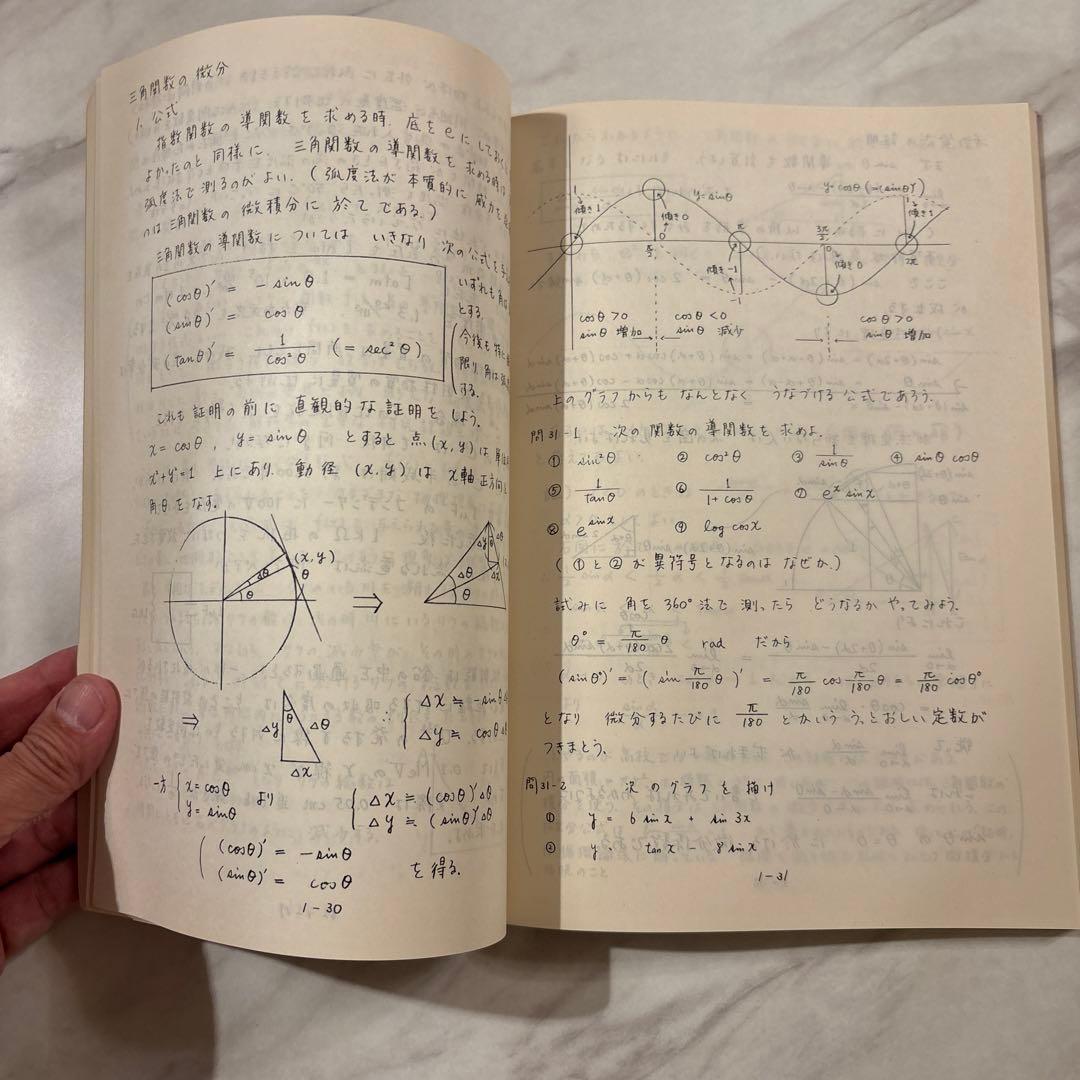 三角関数の微分
1. 公式
指数関数の導関数を求める時、底をeにしておくと
よかったのと同様に、三角関数の導関数を求める時は
弧度法で測るのがよい.(弧度法が本質的に威力を
のは三角関数の微積分に於てである.)
三角関数の導関数については いきなり 次の公式を
(cosθ)' = -sinθ
(sinθ)' = cosθ
(tanθ)' = 1/cos²θ (= sec²θ)
いずれも角は
とする.
(今後も特に
限り、角は
する.
これも証明の前に直観的な証明をしよう.
x = cosθ , y = sinθ とすると点(x, y)は単位
x²+y²=1 上にあり、動径(x, y)は x軸正方向と
角θをなす.
(x, y)
θ
Δθ
θ
⇒
Δy Δθ
θ
Δx
Δθ
θ
⇒
θ
Δy Δθ
Δx
∴ { Δx ≒ -sinθΔ
Δy ≒ cosθΔ
一方 { x = cosθ
y = sinθ より
{ Δx ≒ (cosθ)'Δθ
Δy ≒ (sinθ)'Δθ
(cosθ)' = -sinθ
(sinθ)' = cosθ を得る.
1-30
1
傾き1
傾き0
0
π/2
y=sinθ
π
傾き-1
-1
3π/2
0
傾き0
y=cosθ(=(sinθ)')
1
傾き1
2π
cosθ>0
sinθ 増加
cosθ<0
sinθ 減少
cosθ>0
sinθ 増加
上のグラフからも なんとなく うなづける公式であろう.
問31-1 次の関数の導関数を求めよ.
① sin²θ ② cos²θ ③ 1/sinθ ④ sinθ cosθ
⑤ 1/tanθ ⑥ 1/(1+cosθ) ⑦ eˣ sinx
⑧ e^sinx ⑨ log cosx
(①と②が異符号となるのは なぜか.)
試みに 角を 360°法で 測ったら どうなるか やってみよう.
θ° = π/180 θ rad だから
(sinθ°)' = (sin π/180 θ)' = π/180 cos π/180 θ = π/180 cosθ°
となり 微分するたびに π/180 とかいううっとおしい定数が
つきまとう.
問31-2 次のグラフを描け
① y = 6 sinx + sin 3x
② y = tanx - 8 sinx
1-31